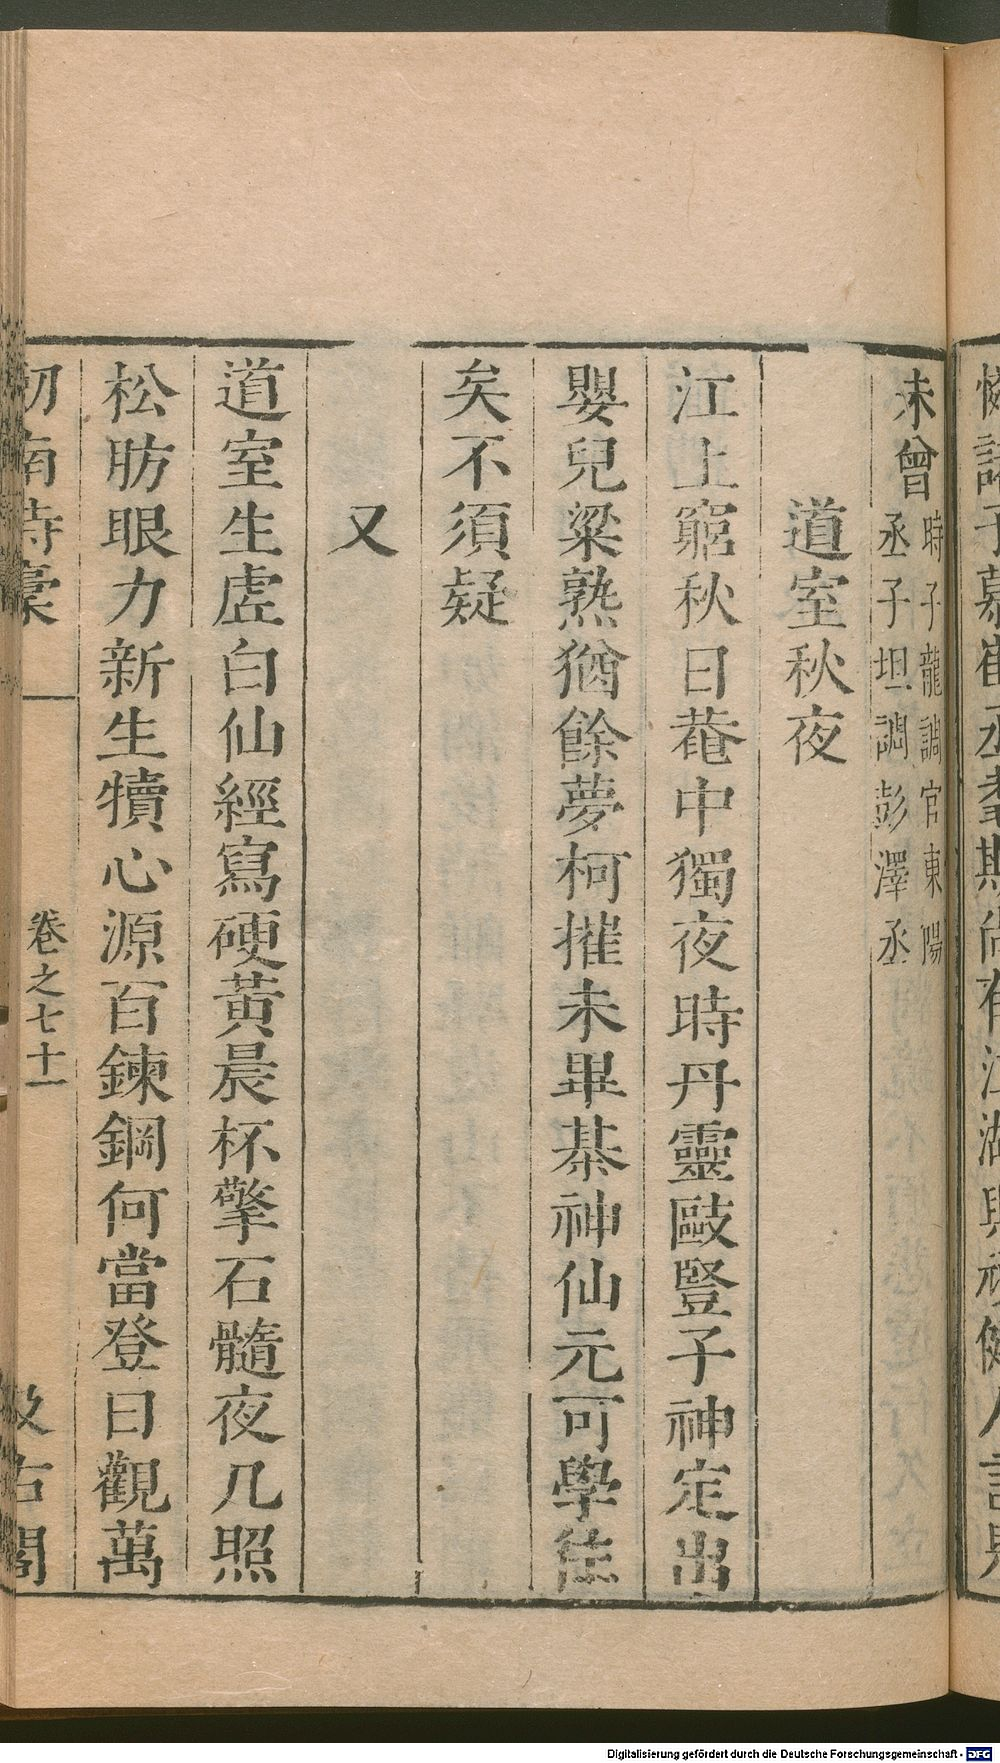 未曾時子龍調官東陽丞子坦調彭澤丞
道室秋夜
江上窮秋日菴中獨夜時丹靈敺豎子神定出
嬰兒粱熟猶餘夢柯摧未畢棊神仙元可學往
矣不須疑
又
道室生虛白仙經寫硬黃晨杯擎石髓夜几照
松肪眼力新生犢心源百鍊鋼何當登日觀萬
劒南詩稾 卷之七十一 汲古閣
Digitalisierung gefördert durch die Deutsche Forschungsgemeinschaft - DFG